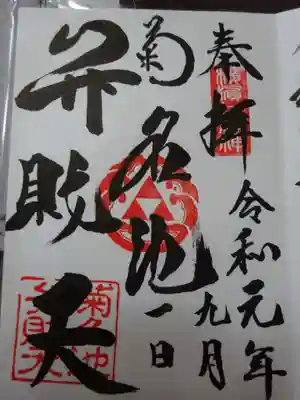 奉拝
令和元年
九月
一日
菊名池
弁財天
菊名池
弁財天